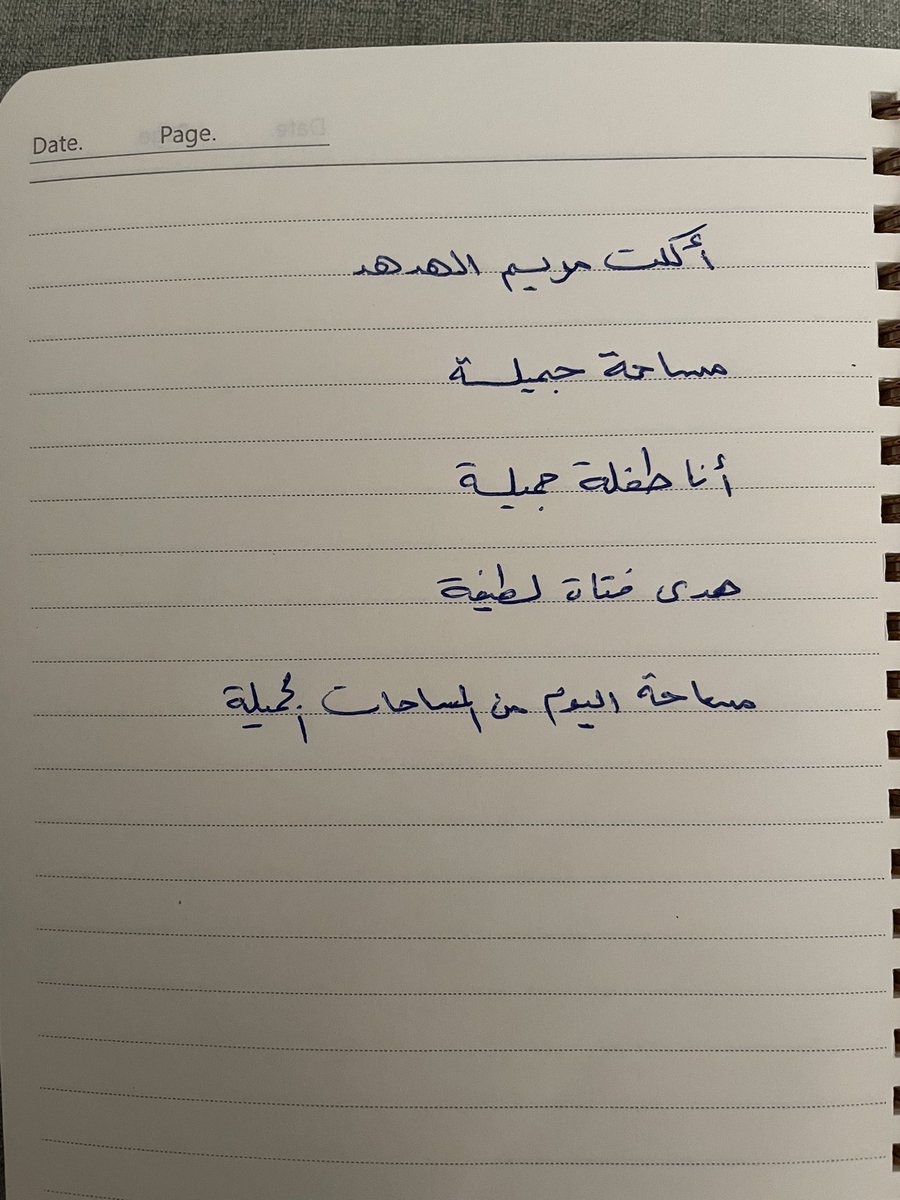 Date. Page.
أكلت مريم الهدهد
مساحة جميلة
أنا طفلة جميلة
هدى فتاة لطيفة
مساحة اليوم من المساحات الجميلة